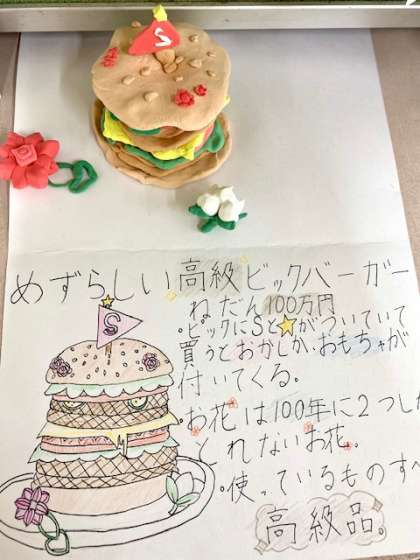 S
めずらしい高級ビックバーガー
ねだん100万円
・ピックにSと⭐がついていて
買うとおかしか、おもちゃが
付いてくる。
・お花は100年に2つしか
とれないお花。
・使っているものすべ
高級品。
S